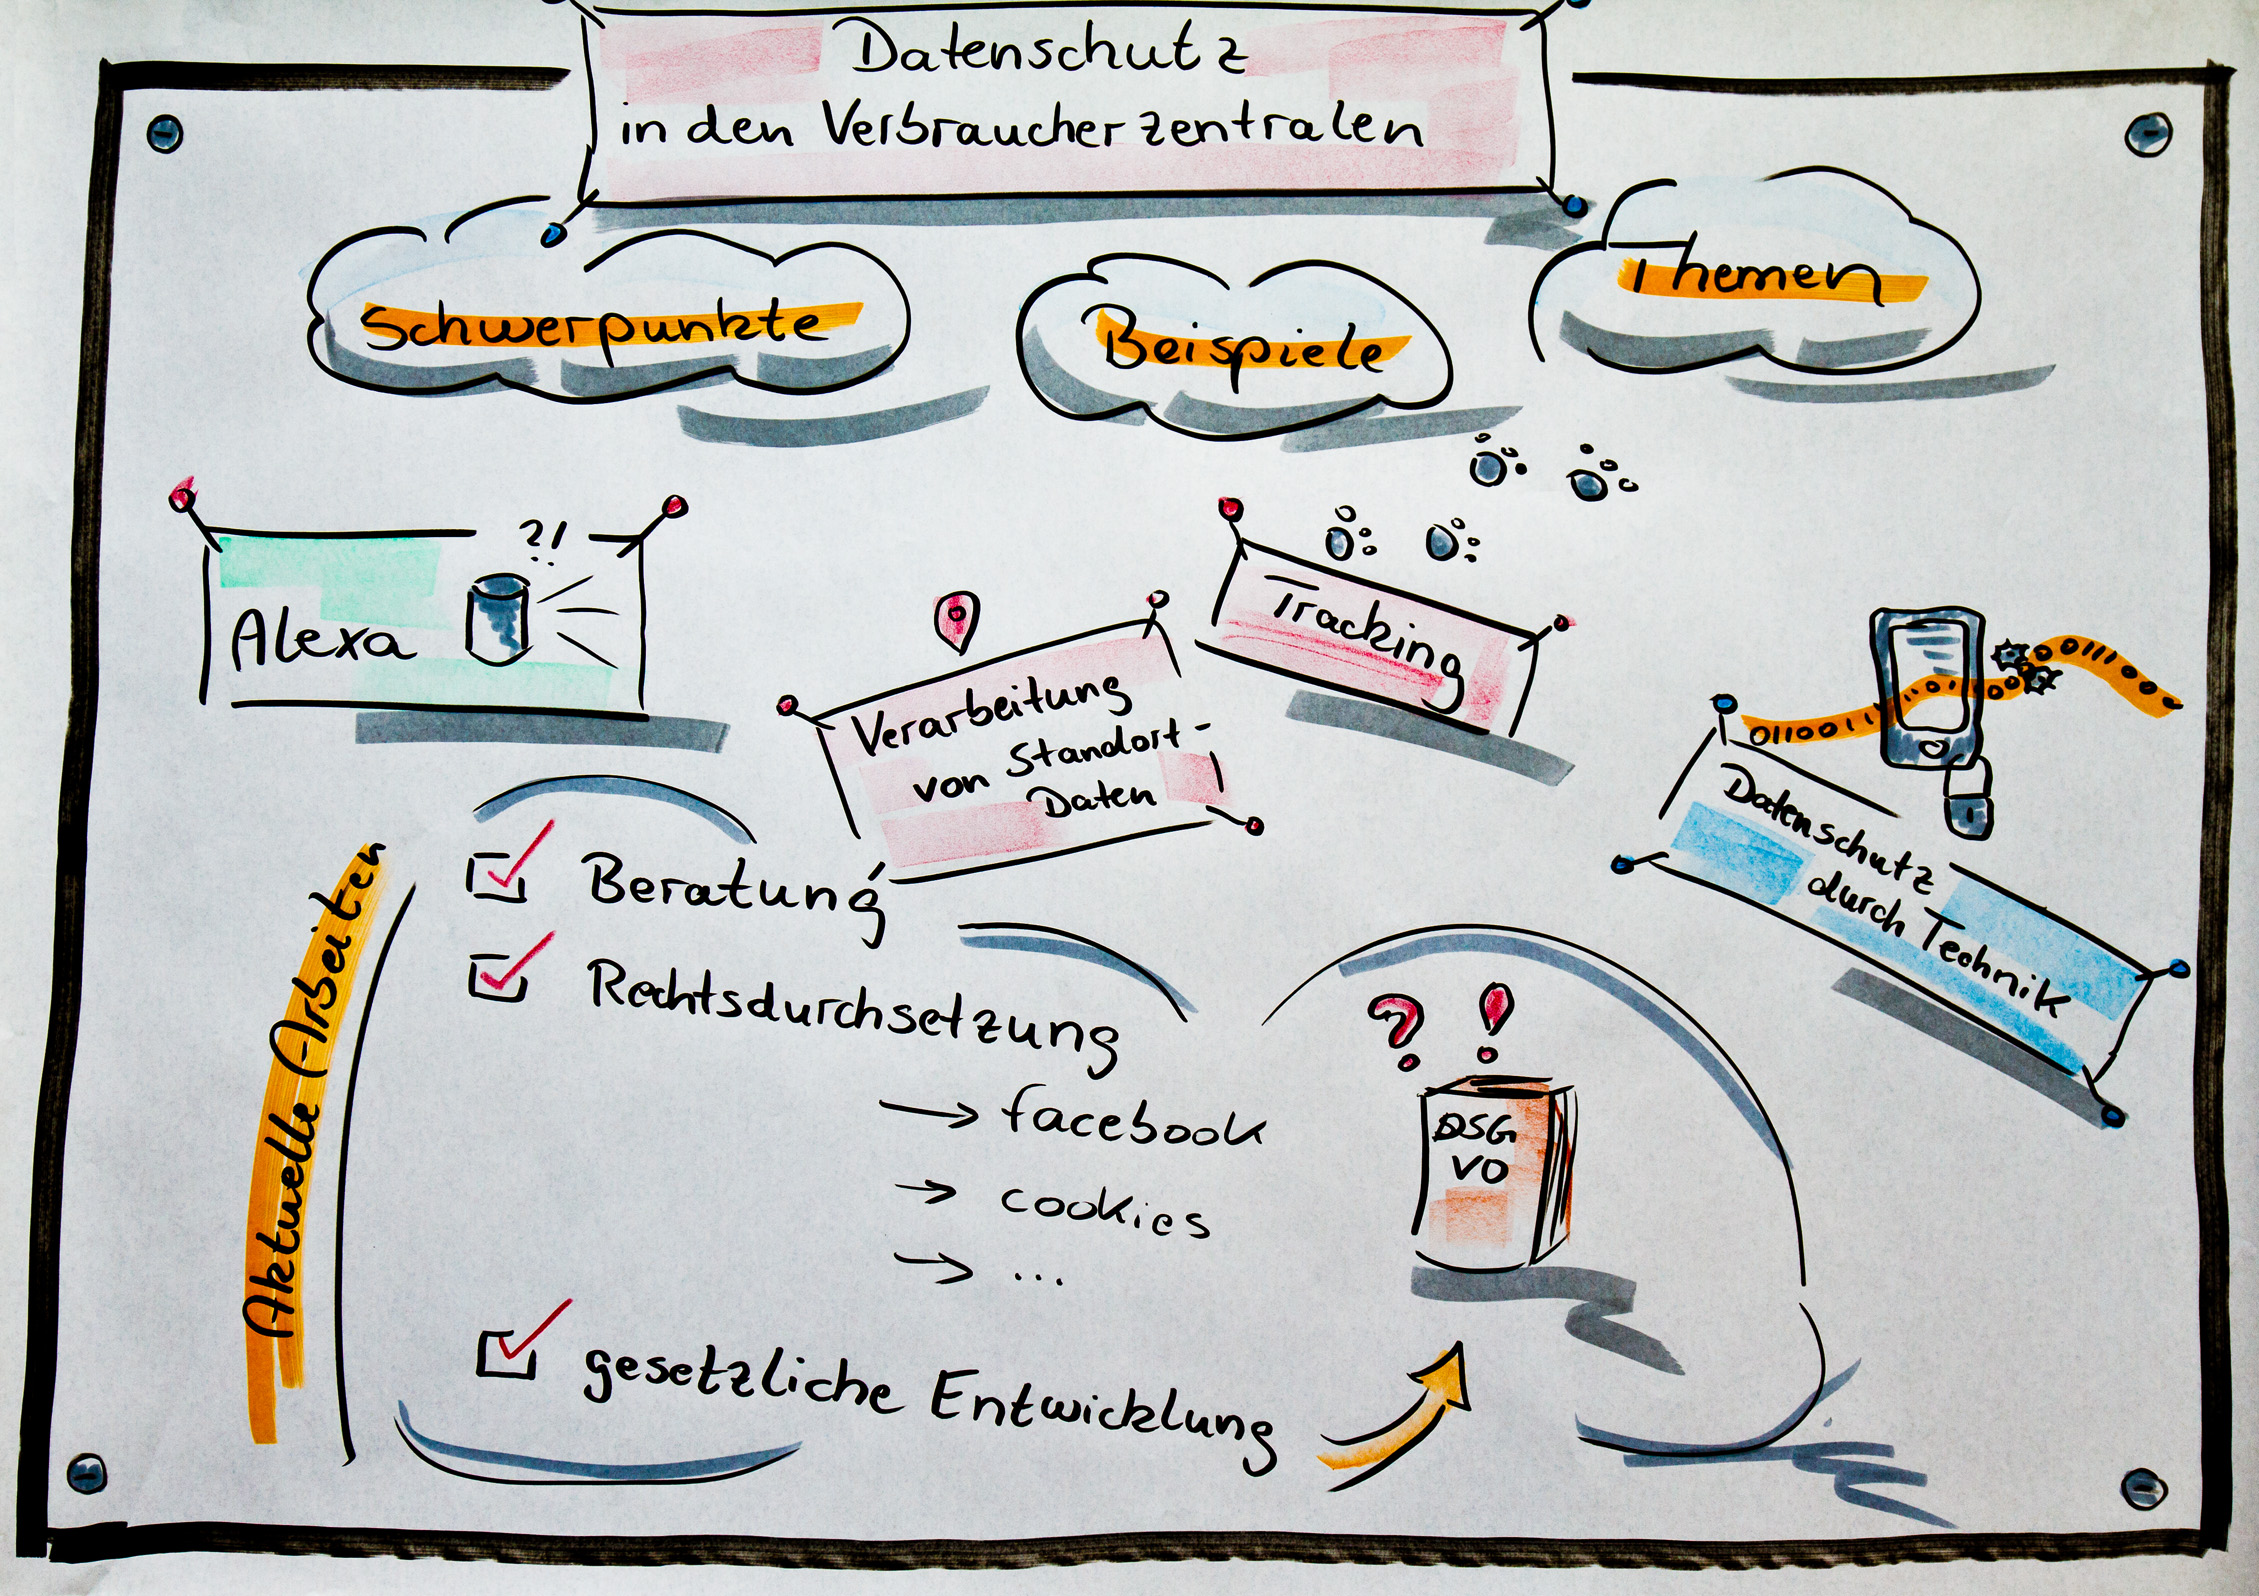 Datenschutz
in den Verbraucherzentralen
Schwerpunkte
Beispiele
Themen
?!
Alexa
Verarbeitung
von Standort-
Daten
Tracking
0110011
Datenschutz
durch Technik
Aktuelle Arbeiten
Beratung
Rechtsdurchsetzung
→ facebook
→ cookies
→ ...
gesetzliche Entwicklung
? !
DSG
VO